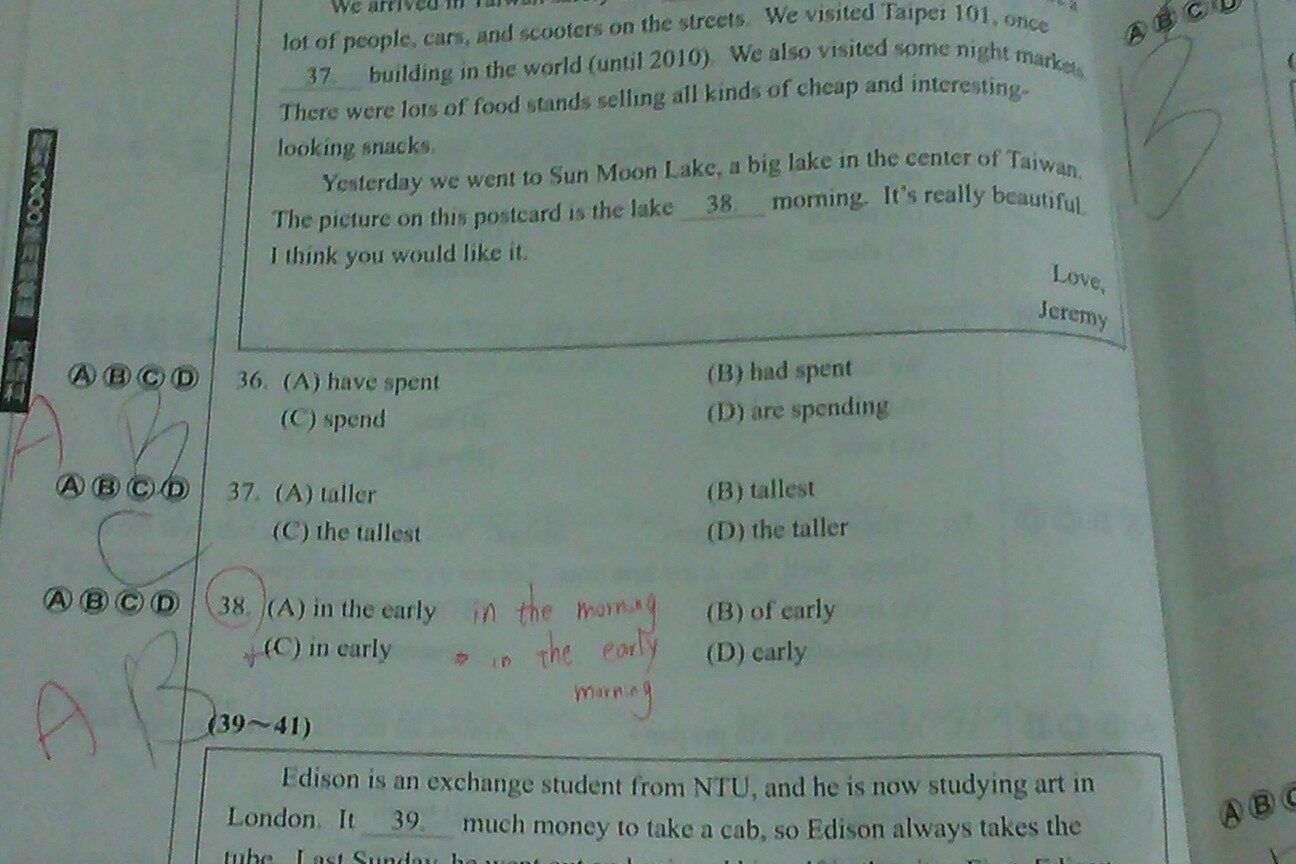 We arrived in Taiwan
lot of people, cars, and scooters on the streets. We visited Taipei 101, once
37. building in the world (until 2010). We also visited some night markets.
There were lots of food stands selling all kinds of cheap and interesting-
looking snacks.
Yesterday we went to Sun Moon Lake, a big lake in the center of Taiwan.
The picture on this postcard is the lake 38. morning. It's really beautiful.
I think you would like it.
Love,
Jeremy
A B C D
B
A B C D 36. (A) have spent (B) had spent
(C) spend (D) are spending
A B
A B C D 37. (A) taller (B) tallest
(C) the tallest (D) the taller
C
A B C D 38. (A) in the early in the morning (B) of early
(C) in early → in the early (D) early
morning
A B
(39~41)
Edison is an exchange student from NTU, and he is now studying art in
London. It 39. much money to take a cab, so Edison always takes the
tube. Last Sunday, he went out
A B C